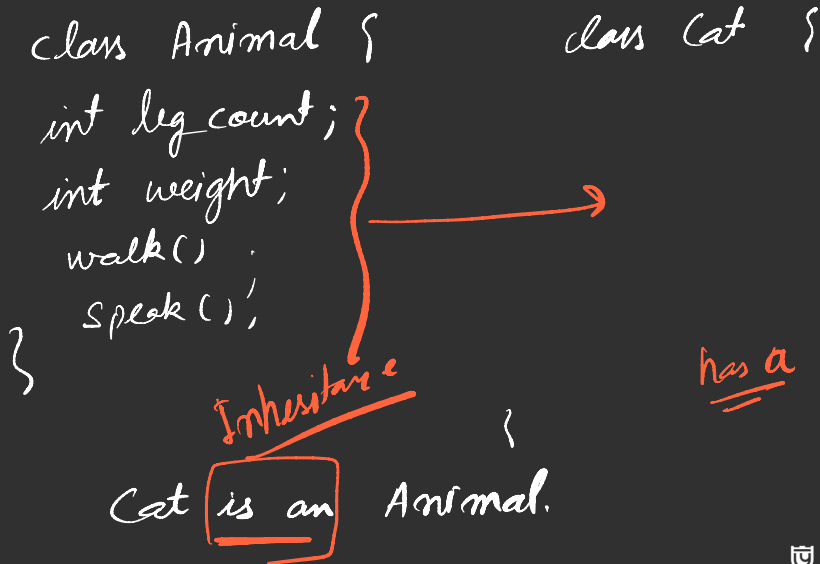 class Animal {
int leg_count;
int weight;
walk()
speak();
}
class Cat {
has a
Inheritance
Cat is an Animal.